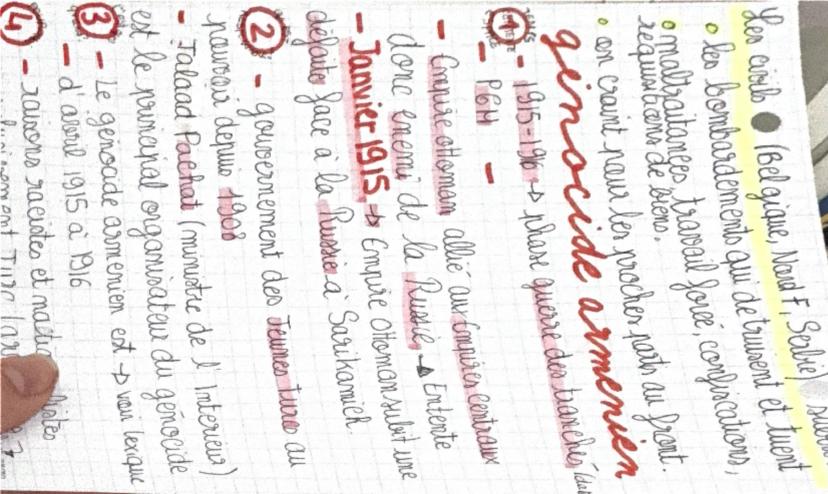 Les civils (Belgique, Nord F, Serbie)
• les bombardements qui détruisent et tuent
• maltraitances, travail forcé, confiscations,
réquisitions de biens.
• on craint pour les proches partis au front.
génocide arménien
1 - 1915-1916 → phase guerre des tranchées
- PGM -
- Empire ottoman allié aux empires centraux
donc enemi de la Russie → Entente
- Janvier 1915 → Empire Ottoman subit une
défaite face à la Russie à Sarikamich
2 - gouvernement des Jeunes turcs au
pouvoir depuis 1908
- Talaad Pachat (ministre de l'Intérieur)
est le principal organisateur du génocide
3 - Le génocide arménien est → voir lexique
- d'avril 1915 à 1916
4 - raisons racistes et